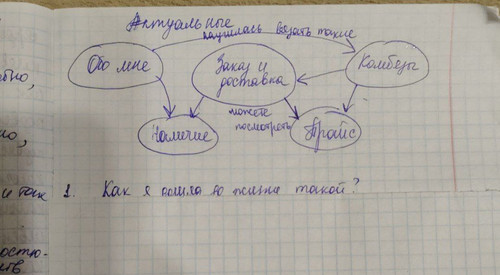 Актуальные
научилась вязать такие
Обо мне
Заказ и
доставка
Комбезы
можете
посмотреть
Наличие
Прайс
но,
и так
1. Как я дошла до жизни такой?